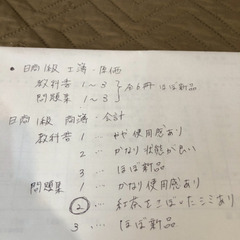 • 日商1級 工簿・原価
教科書 1〜3
問題集 1〜3
全6冊 ほぼ新品
日商1級 商簿・会計
教科書 1 … やや使用感あり
2 … かなり状態が良い
3 … ほぼ新品
問題集 1 … かなり使用感あり
② … 紅茶をこぼしたシミあり
3 … ほぼ新品